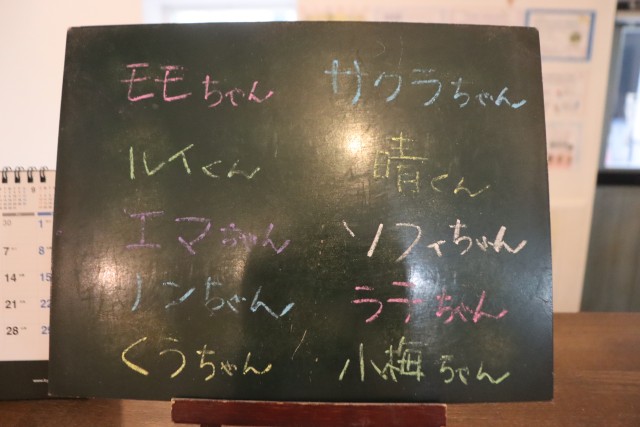 モモちゃん サクラちゃん
ルイくん 晴くん
エマちゃん ソフィちゃん
ノンちゃん ララちゃん
くうちゃん 小梅ちゃん
30 1
7 8
14 15
21 22
28